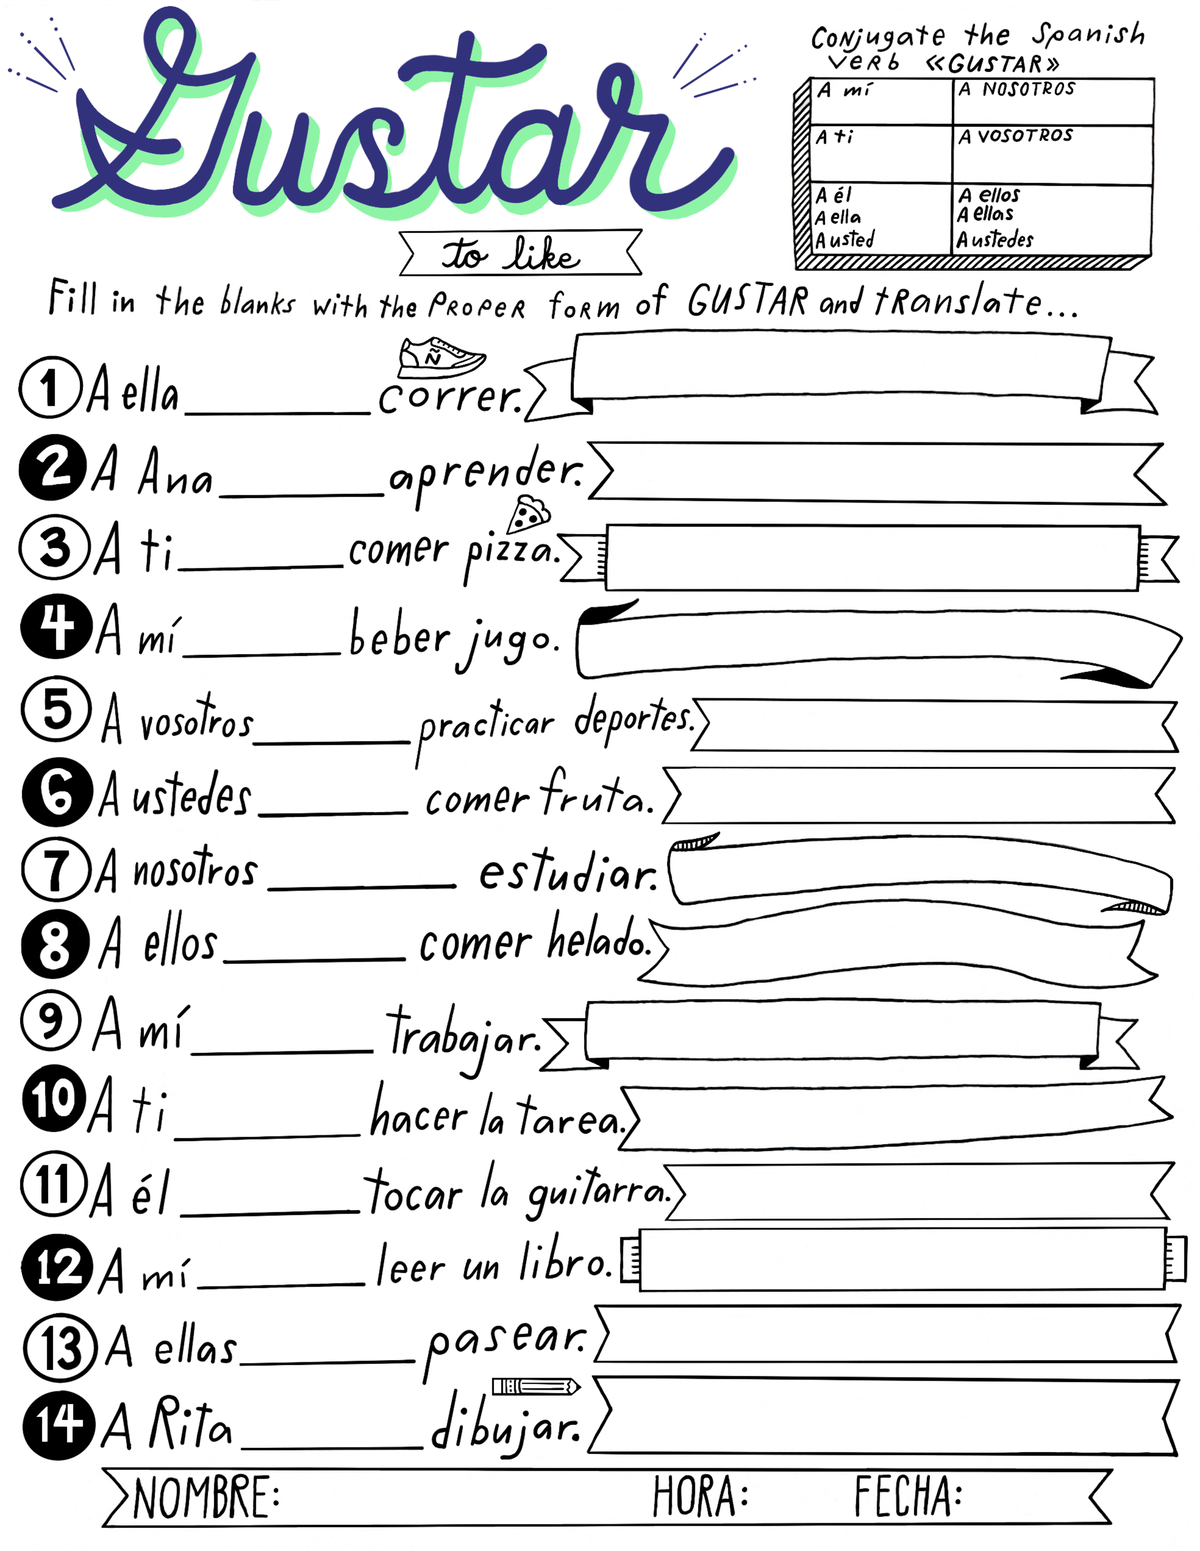 Gustar
to like
Conjugate the Spanish
verb «GUSTAR»
A mí
A NOSOTROS
A ti
A VOSOTROS
A él
A ella
A usted
A ellos
A ellas
A ustedes
Fill in the blanks with the PROPER form of GUSTAR and translate...
Ñ
1 A ella __________ correr.
2 A Ana __________ aprender.
3 A ti __________ comer pizza.
4 A mí __________ beber jugo.
5 A vosotros __________ practicar deportes.
6 A ustedes __________ comer fruta.
7 A nosotros __________ estudiar.
8 A ellos __________ comer helado.
9 A mí __________ trabajar.
10 A ti __________ hacer la tarea.
11 A él __________ tocar la guitarra.
12 A mí __________ leer un libro.
13 A ellas __________ pasear.
14 A Rita __________ dibujar.
NOMBRE: HORA: FECHA: